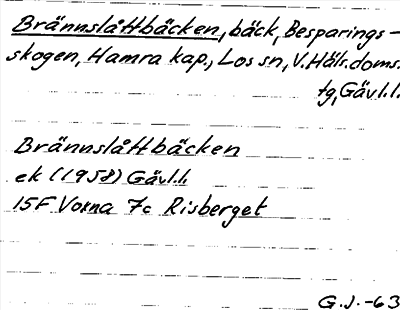 Brännslåttbäcken, bäck, Besparings-
skogen, Hamra kap., Los sn, V. Häls. doms.
tg, Gävl.l.
Brännslåttbäcken
ek (1958) Gävl.l.
15F Voxna 7c Risberget
G.J. -63